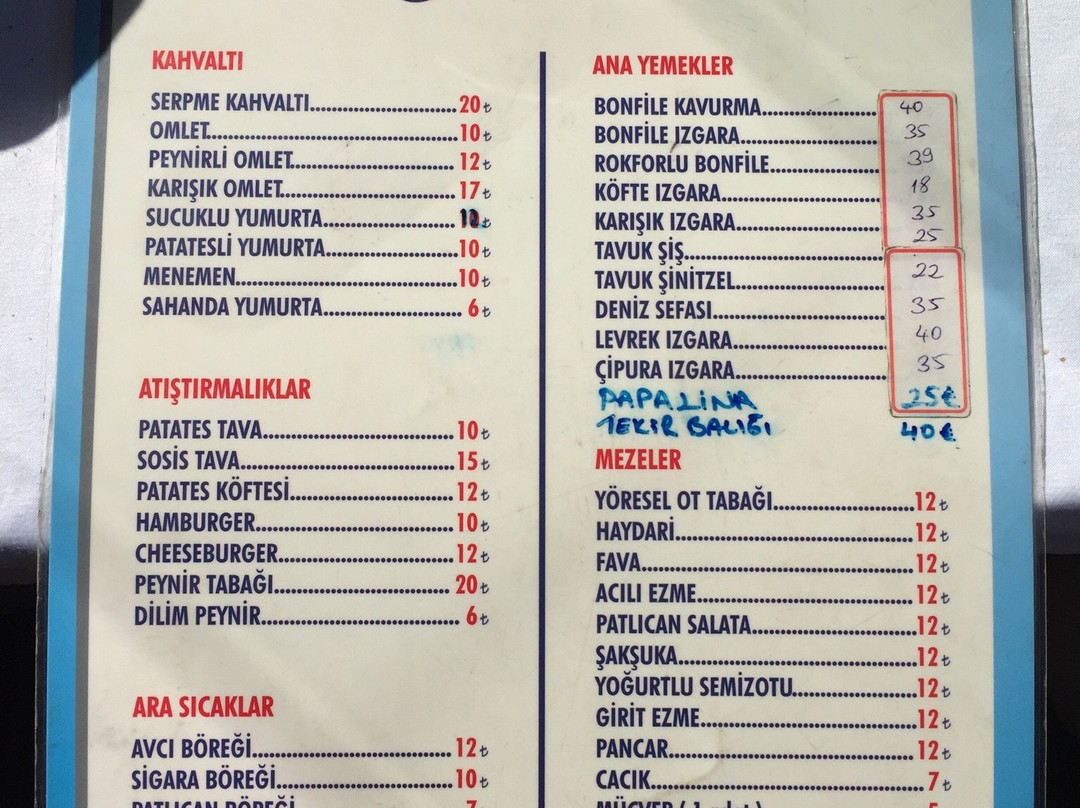 KAHVALTI
SERPME KAHVALTI 20 ₺
OMLET 10 ₺
PEYNİRLİ OMLET 12 ₺
KARIŞIK OMLET 17 ₺
SUCUKLU YUMURTA ₺
PATATESLİ YUMURTA 10 ₺
MENEMEN 10 ₺
SAHANDA YUMURTA 6 ₺
ATIŞTIRMALIKLAR
PATATES TAVA 10 ₺
SOSİS TAVA 15 ₺
PATATES KÖFTESİ 12 ₺
HAMBURGER 10 ₺
CHEESEBURGER 12 ₺
PEYNİR TABAĞI 20 ₺
DİLİM PEYNİR 6 ₺
ARA SICAKLAR
AVCI BÖREĞİ 12 ₺
SİGARA BÖREĞİ 10 ₺
PATLICAN BÖREĞİ
ANA YEMEKLER
BONFİLE KAVURMA 40
BONFİLE IZGARA 35
ROKFORLU BONFİLE 39
KÖFTE IZGARA 18
KARIŞIK IZGARA 35
TAVUK ŞİŞ 25
TAVUK ŞİNİTZEL 22
DENİZ SEFASI 35
LEVREK IZGARA 40
ÇİPURA IZGARA 35
PAPALİNA 25 ₺
TEKİR BALIĞI 40 ₺
MEZELER
YÖRESEL OT TABAĞI 12 ₺
HAYDARİ 12 ₺
FAVA 12 ₺
ACILI EZME 12 ₺
PATLICAN SALATA 12 ₺
ŞAKŞUKA 12 ₺
YOĞURTLU SEMİZOTU 12 ₺
GİRİT EZME 12 ₺
PANCAR 12 ₺
CACIK 7 ₺
MÜCVER ( 1 adet )